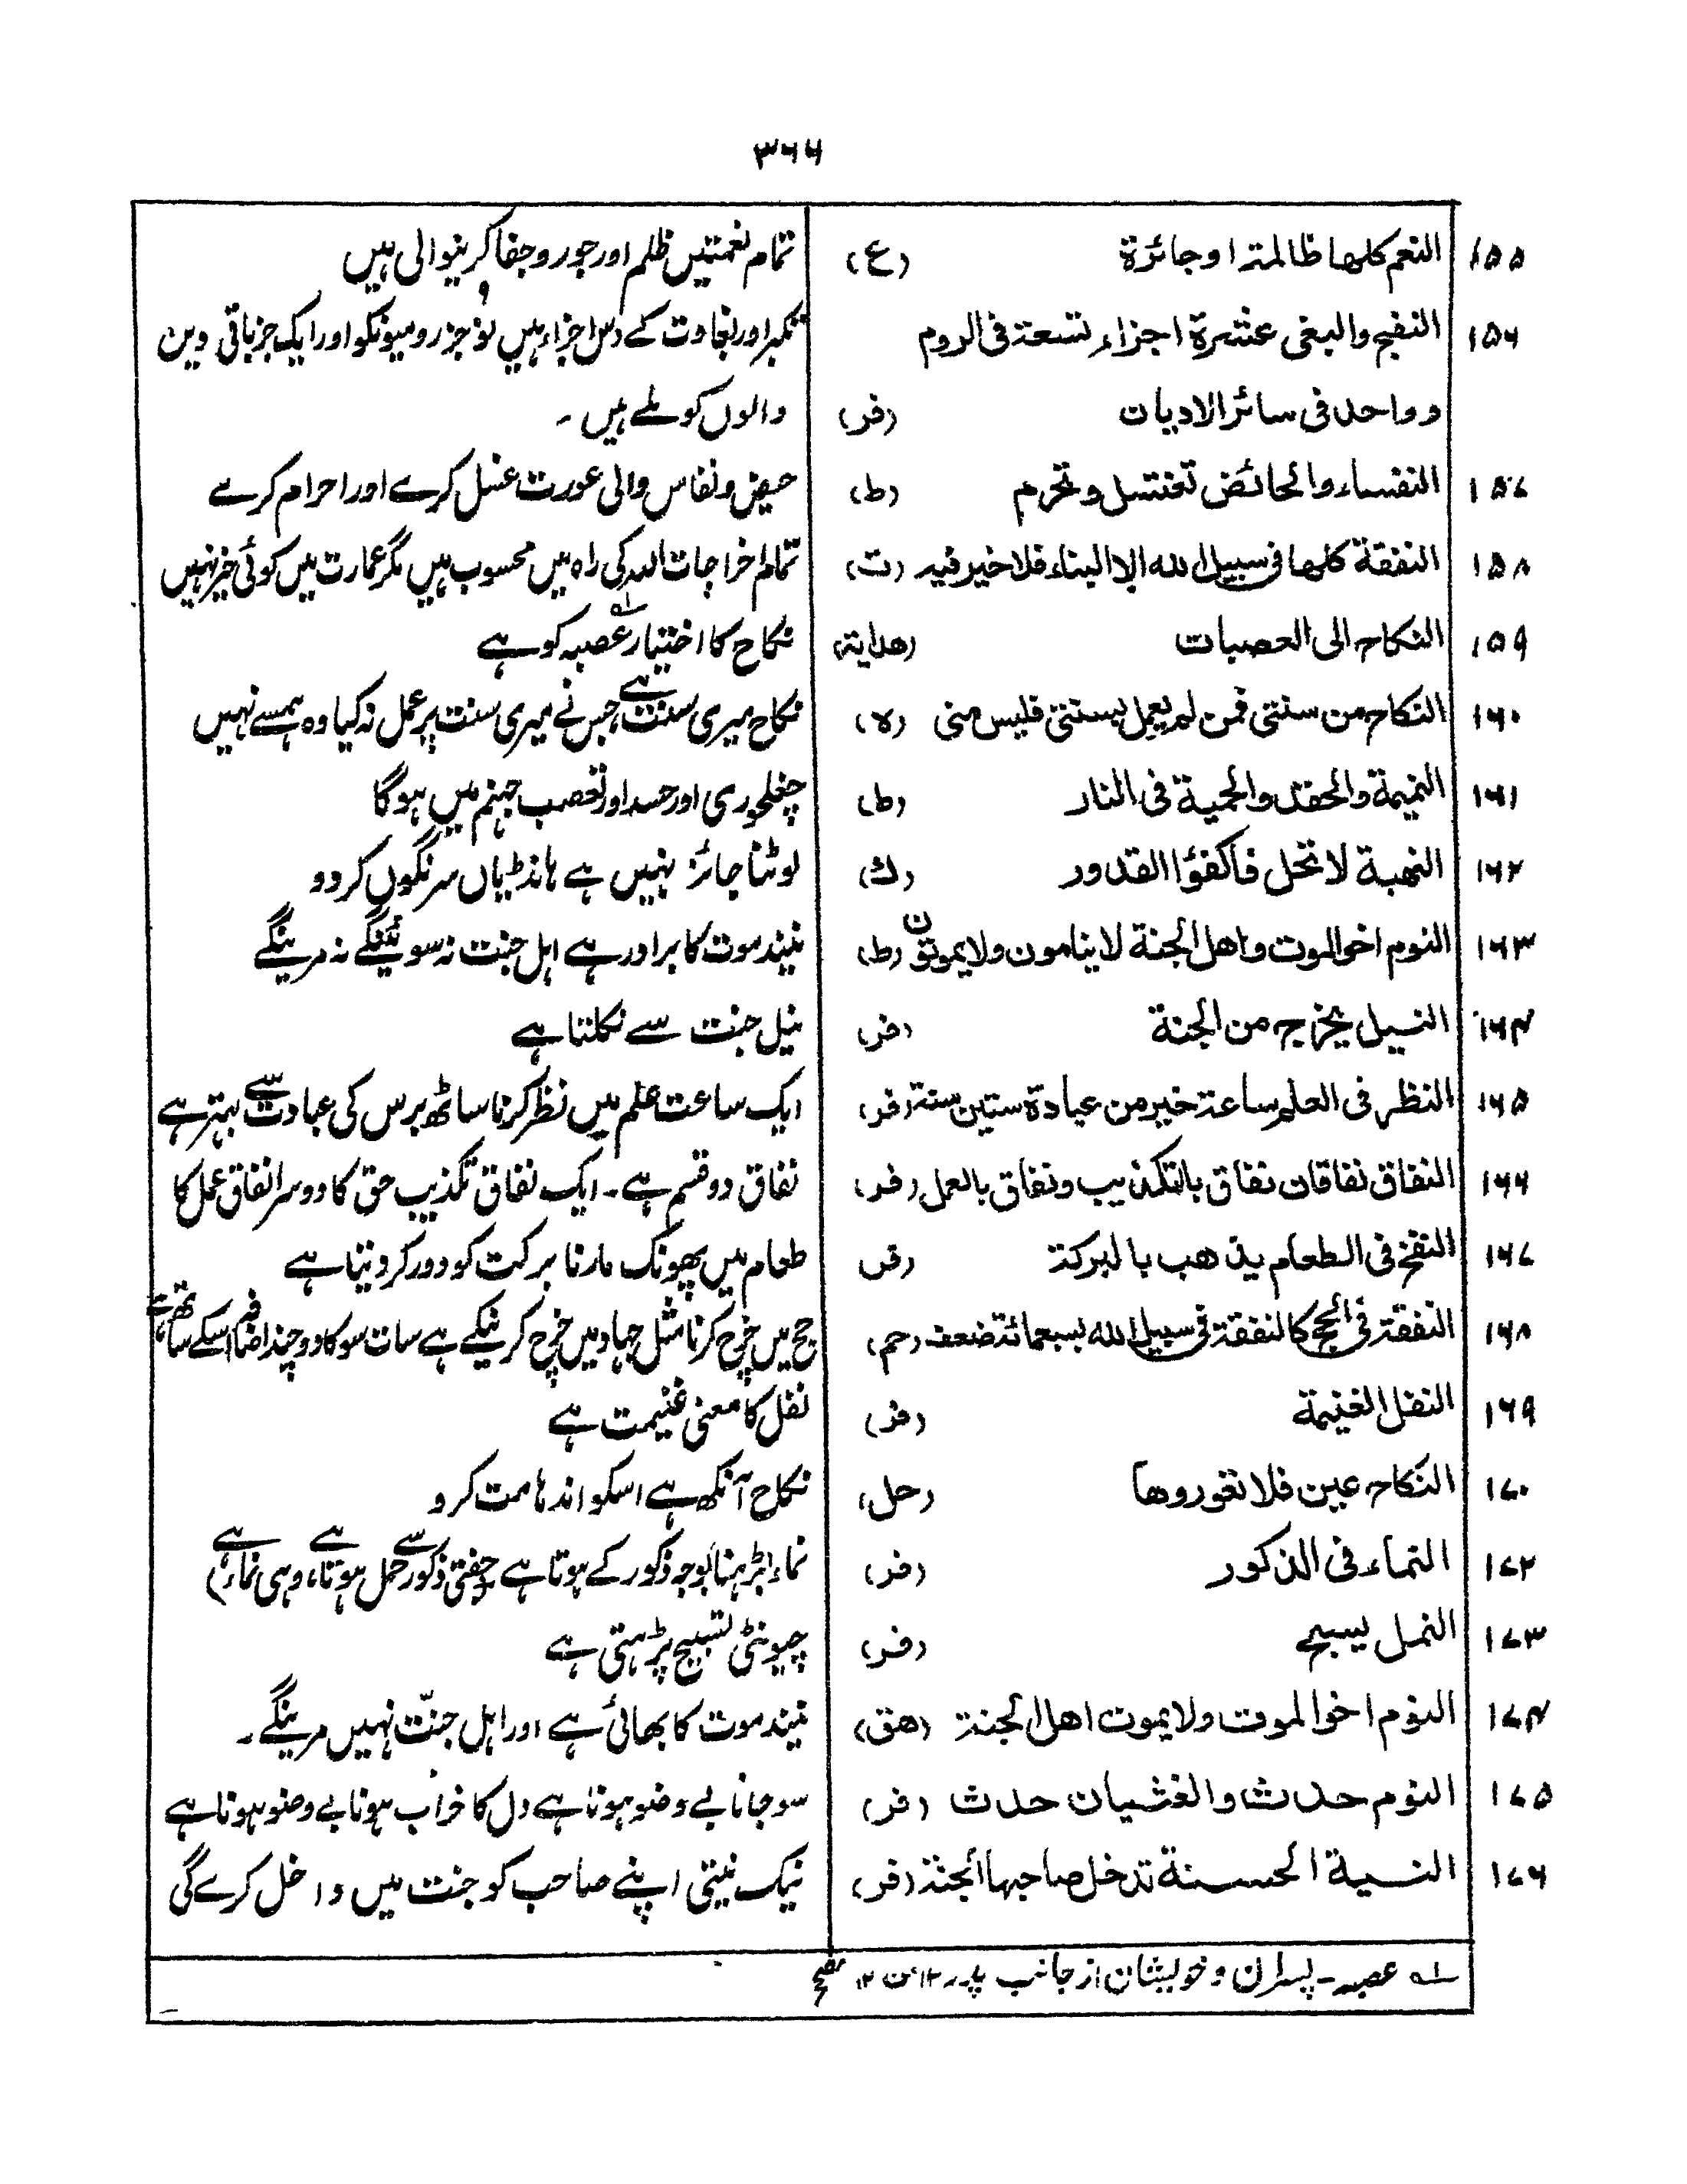 ۳۶۶
۱۵۵ النعم كلها ظالمة او جائرة (ع) تمام نعمتیں ظلم اور جور و جفا کرنیوالی ہیں
۱۵۶ النفج والبغى عشرة اجزاء تسعة فى الروم تکبر اور بغاوت کے دس اجزاء ہیں نو جزء رومیونکو اور ایک جز باقی دین
و واحد فى سائر الاديان (فر) والوں کو ملے ہیں ۔
۱۵۷ النفساء والحائض تغتسل وتحرم (ط) حیض و نفاس والی عورت غسل کرے اور احرام کرے
۱۵۸ النفقة كلها فى سبيل الله الا البناء فلا خير فيه (ت) تمام اخراجات اللہ کی راہ میں محسوب ہیں مگر عمارت میں کوئی خیر نہیں
۱۵۹ النكاح الى العصبات (هداية) نکاح کا اختیار عصبہ ؎۱ کو ہے
۱۶۰ النكاح من سنتى فمن لم يعمل بسنتى فليس منى (ه) نکاح میری سنت ہے جس نے میری سنت پر عمل نہ کیا وہ ہمسے نہیں
۱۶۱ النميمة والحقد والحمية فى النار (ط) چغلخوری اور حسد اور تعصب جہنم میں ہوگا
۱۶۲ النهبة لا تحل فاكفؤا القدور (ك) لوٹنا جائز نہیں ہے ہانڈیاں سرنگوں کردو
۱۶۳ النوم اخو الموت واهل الجنة لا ينامون ولا يموتون (ط) نیند موت کا برادر ہے اہل جنت نہ سوئینگے نہ مرینگے
۱۶۴ النيل يخرج من الجنة (فر) نیل جنت سے نکلتا ہے
۱۶۵ النظر فى العلم ساعة خير من عبادة ستين سنة (فر) ایک ساعت علم میں نظر کرنا ساٹھ برس کی عبادت سے بہتر ہے
۱۶۶ النفاق نفاقان نفاق بالتكذيب ونفاق بالعمل (فر) نفاق دو قسم ہے ۔ ایک نفاق تکذیب حق کا دوسرا نفاق عمل کا
۱۶۷ النفخ فى الطعام يذهب بالبركة (فر) طعام میں پھونک مارنا برکت کو دور کردیتا ہے
۱۶۸ النفقة فى الحج كالنفقة فى سبيل الله بسبعمائة ضعف (حم) حج میں خرچ کرنا مثل جہاد میں خرچ کرنیکے ہے سات سو کا دوچند اضافہ اسکے ساتھ ہے
۱۶۹ النفل الغنيمة (فر) نفل کا معنی غنیمت ہے
۱۷۰ النكاح عين فلا تغوروها (حل) نکاح آنکھ ہے اسکو اندہا مت کرو
۱۷۲ النماء فى الذكور (فر) نماء (بڑہنا) بوجہ ذکور کے ہوتا ہے (جفتی ذکور سے حمل ہوتا ہے، وہی نماء ہے)
۱۷۳ النمل يسبح (فر) چیونٹی تسبیح پڑہتی ہے
۱۷۴ النوم اخو الموت ولا يموت اهل الجنة (هق) نیند موت کا بھائی ہے اور اہل جنّت نہیں مرینگے ۔
۱۷۵ النوم حدث والغشيان حدث (فر) سو جانا بے وضو ہونا ہے دل کا خراب ہونا بے وضو ہونا ہے
۱۷۶ النية الحسنة تدخل صاحبها الجنة (فر) نیک نیتی اپنے صاحب کو جنت میں داخل کرے گی
؎۱ عصبہ ۔ پسران و خویشان از جانب پدر ۱۲ ن ۱۲ مصحح